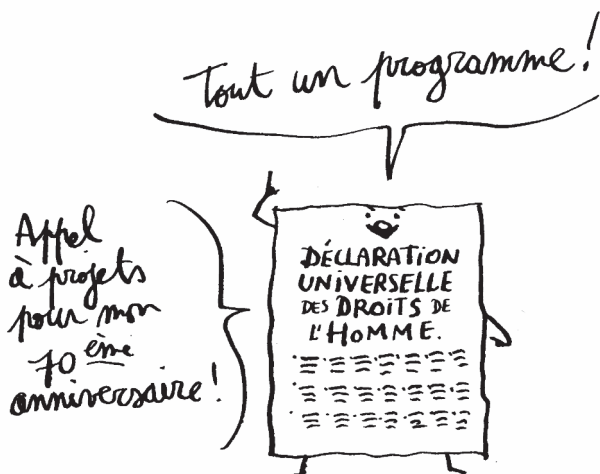 Tout un programme !
Appel
à projets
pour mon
70 ème
anniversaire !
DÉCLARATION
UNIVERSELLE
DES DROITS DE
L'HOMME.